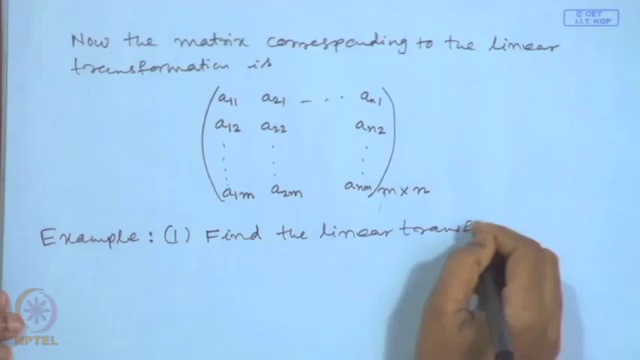 © CET
I.I.T. KGP
Now the matrix corresponding to the linear
transformation is
a11 a21 - ··· an1
a12 a22 an2
⋮ ⋮ ⋮
a1m a2m anm m×n
Example: (1) Find the linear transf
NPTEL